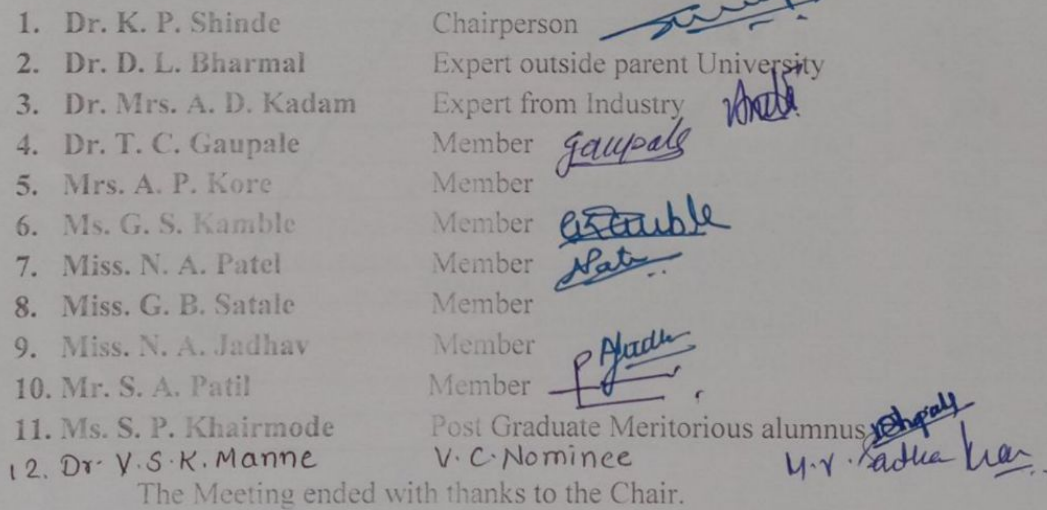 1. Dr. K. P. Shinde Chairperson
2. Dr. D. L. Bharmal Expert outside parent University
3. Dr. Mrs. A. D. Kadam Expert from Industry
4. Dr. T. C. Gaupale Member Gaupale
5. Mrs. A. P. Kore Member
6. Ms. G. S. Kamble Member GSKamble
7. Miss. N. A. Patel Member
8. Miss. G. B. Satale Member
9. Miss. N. A. Jadhav Member
10. Mr. S. A. Patil Member
11. Ms. S. P. Khairmode Post Graduate Meritorious alumnus
12. Dr. V.S.K. Manne V.C. Nominee
The Meeting ended with thanks to the Chair.